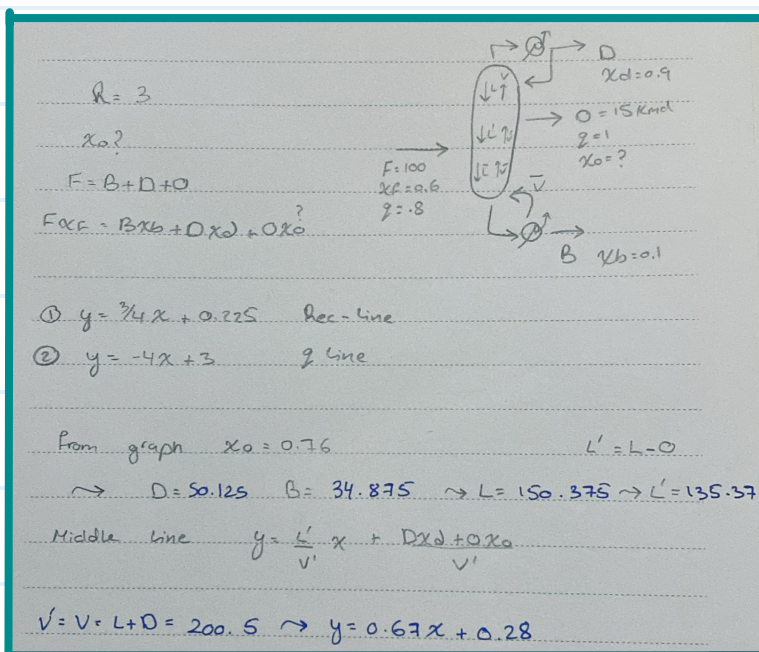 D
xd=0.9
R= 3
L V
O = 15 Kmol
q=1
xo=?
xo?
F=100
xF=0.6
q=.8
F=B+D+O
V̄
FxF = Bxb+Dxd+Oxo ?
B xb=0.1
① y= 3/4 x + 0.225 Rec-line
② y= -4x+3 q line
From graph xo=0.76 L' = L-O
↝ D=50.125 B= 34.875 ↝ L= 150.375 ↝ L'=135.37
Middle line y= L'/V' x + Dxd+Oxo/V'
V'=V=L+D= 200.5 ↝ y=0.67x+0.28